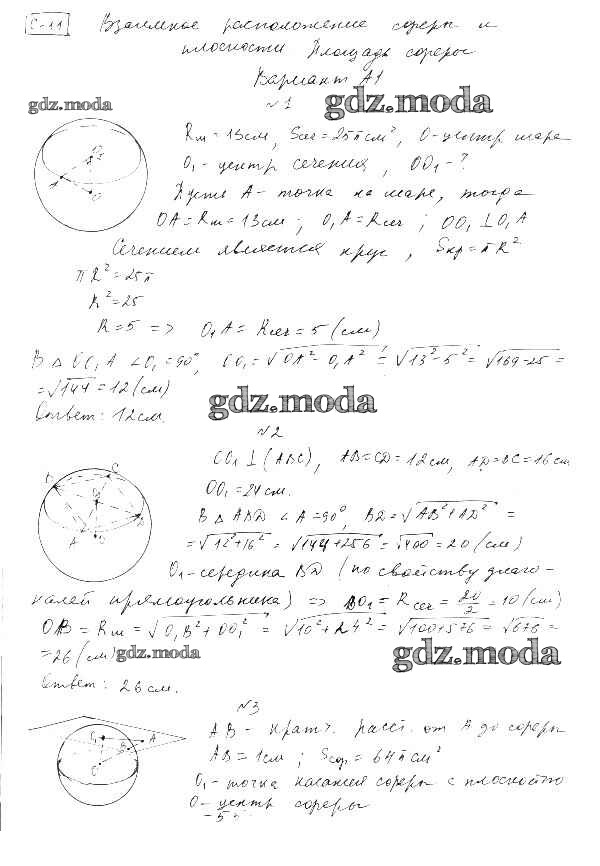 С-11 Взаимное расположение сферы и
плоскости Площадь сферы
Вариант А1
gdz.moda
№1
gdz.moda
Rш = 13см, Sсеч = 25π см², О-центр шара
О₁ - центр сечения, ОО₁ - ?
Пусть А - точка на шаре, тогда
ОА = Rш = 13см; О₁А = Rсеч; ОО₁ ⊥ О₁А
Сечением является круг, Sкр = πR²
πR² = 25π
R² = 25
R = 5 => О₁А = Rсеч = 5 (см)
В △ ОО₁А ∠О₁ = 90°, ОО₁ = √ОА² - О₁А² = √13² - 5² = √169 - 25 =
= √144 = 12 (см)
Ответ: 12см.
gdz.moda
№2
ОО₁ ⊥ (АВС), АВ = CD = 12см, AD = ВС = 16см
ОО₁ = 24см.
В △ ABD ∠А = 90°, BD = √AB² + AD² =
= √12² + 16² = √144 + 256 = √400 = 20 (см)
О₁ - середина BD (по свойству диаго-
налей прямоугольника) => ВО₁ = Rсеч = 20/2 = 10 (см)
ОВ = Rш = √О₁В² + ОО₁² = √10² + 24² = √100 + 576 = √676 =
= 26 (см)
gdz.moda
gdz.moda
Ответ: 26см.
№3
АВ - крат. расст. от А до сферы
АВ = 1см; Sсф. = 64π см²
О₁ - точка касания сферы с плоскостью
О - центр сферы